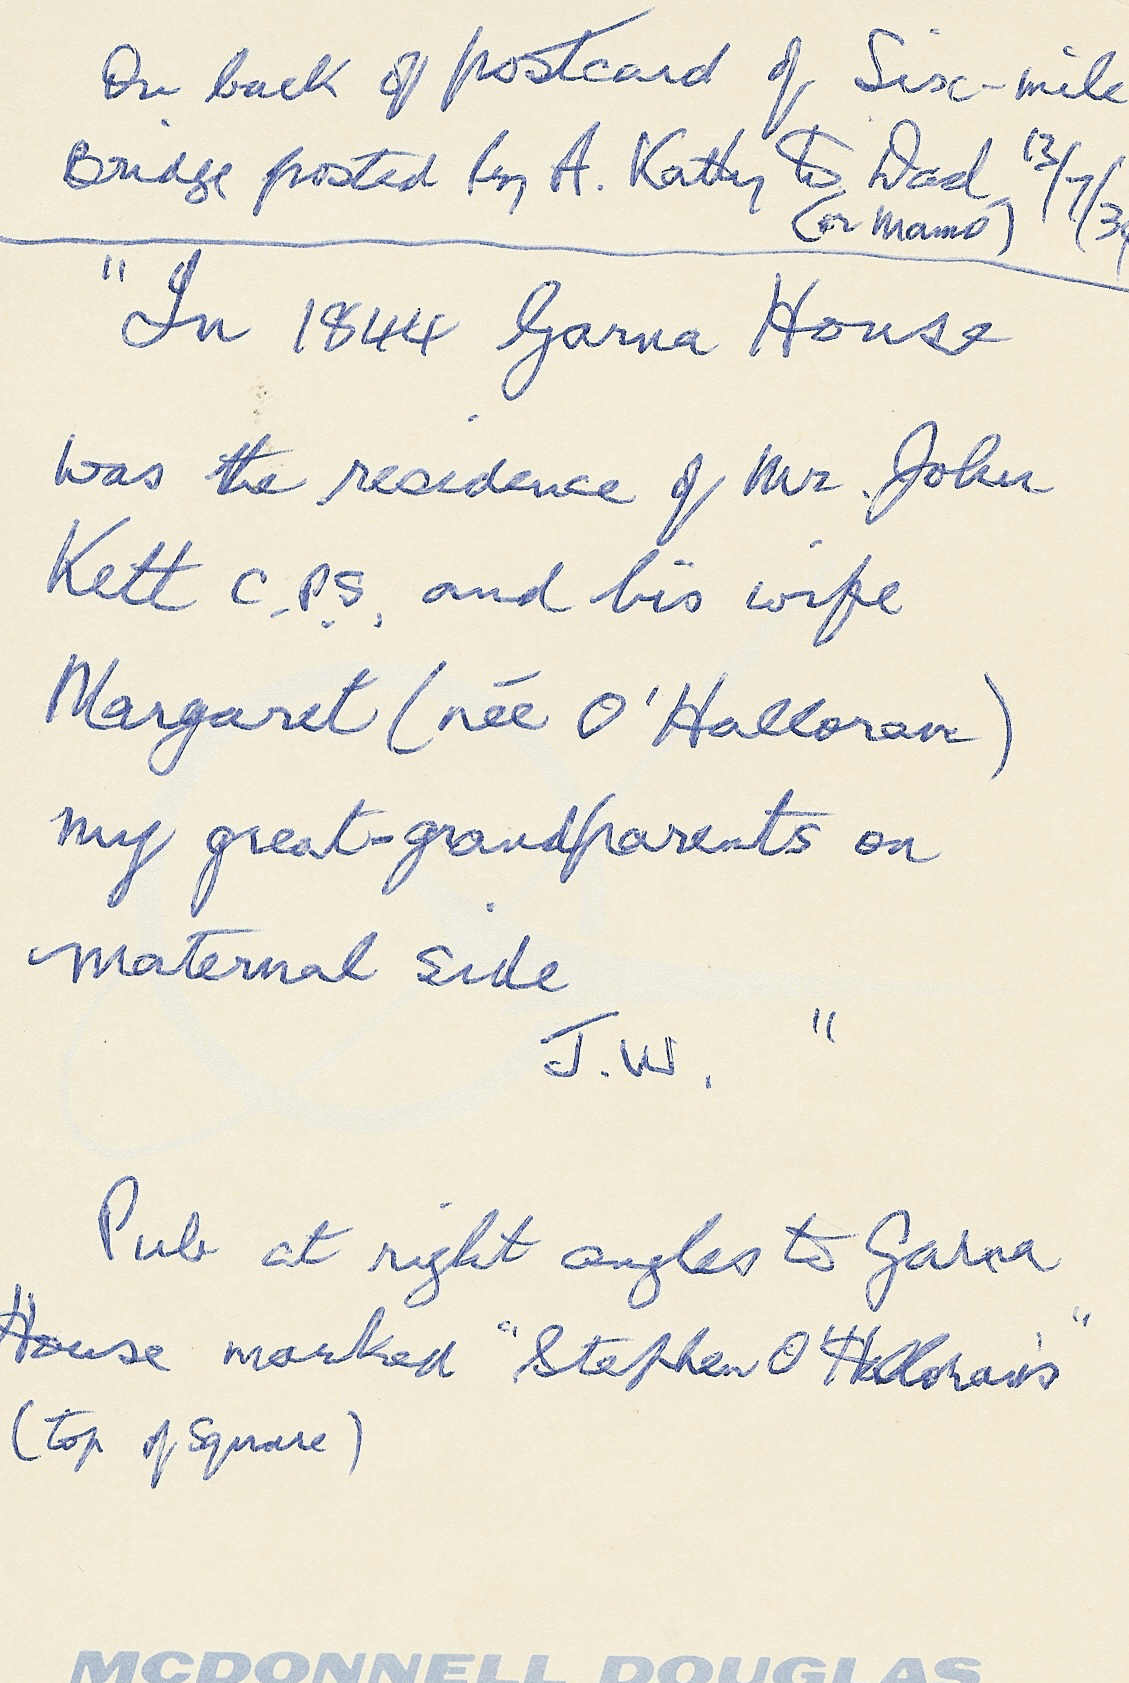 On back of postcard of Six-mile
Bridge posted by A. Kathy to Dad 13/7/39
(or Mamo)
"In 1844 Garna House
was the residence of Mr. John
Kett C.P.S. and his wife
Margaret (née O'Halloran)
my great-grandparents on
maternal side
J.W. "
Pub at right angles to Garna
House marked "Stephen O'Halloran's"
(top of Square)
MCDONNELL DOUGLAS